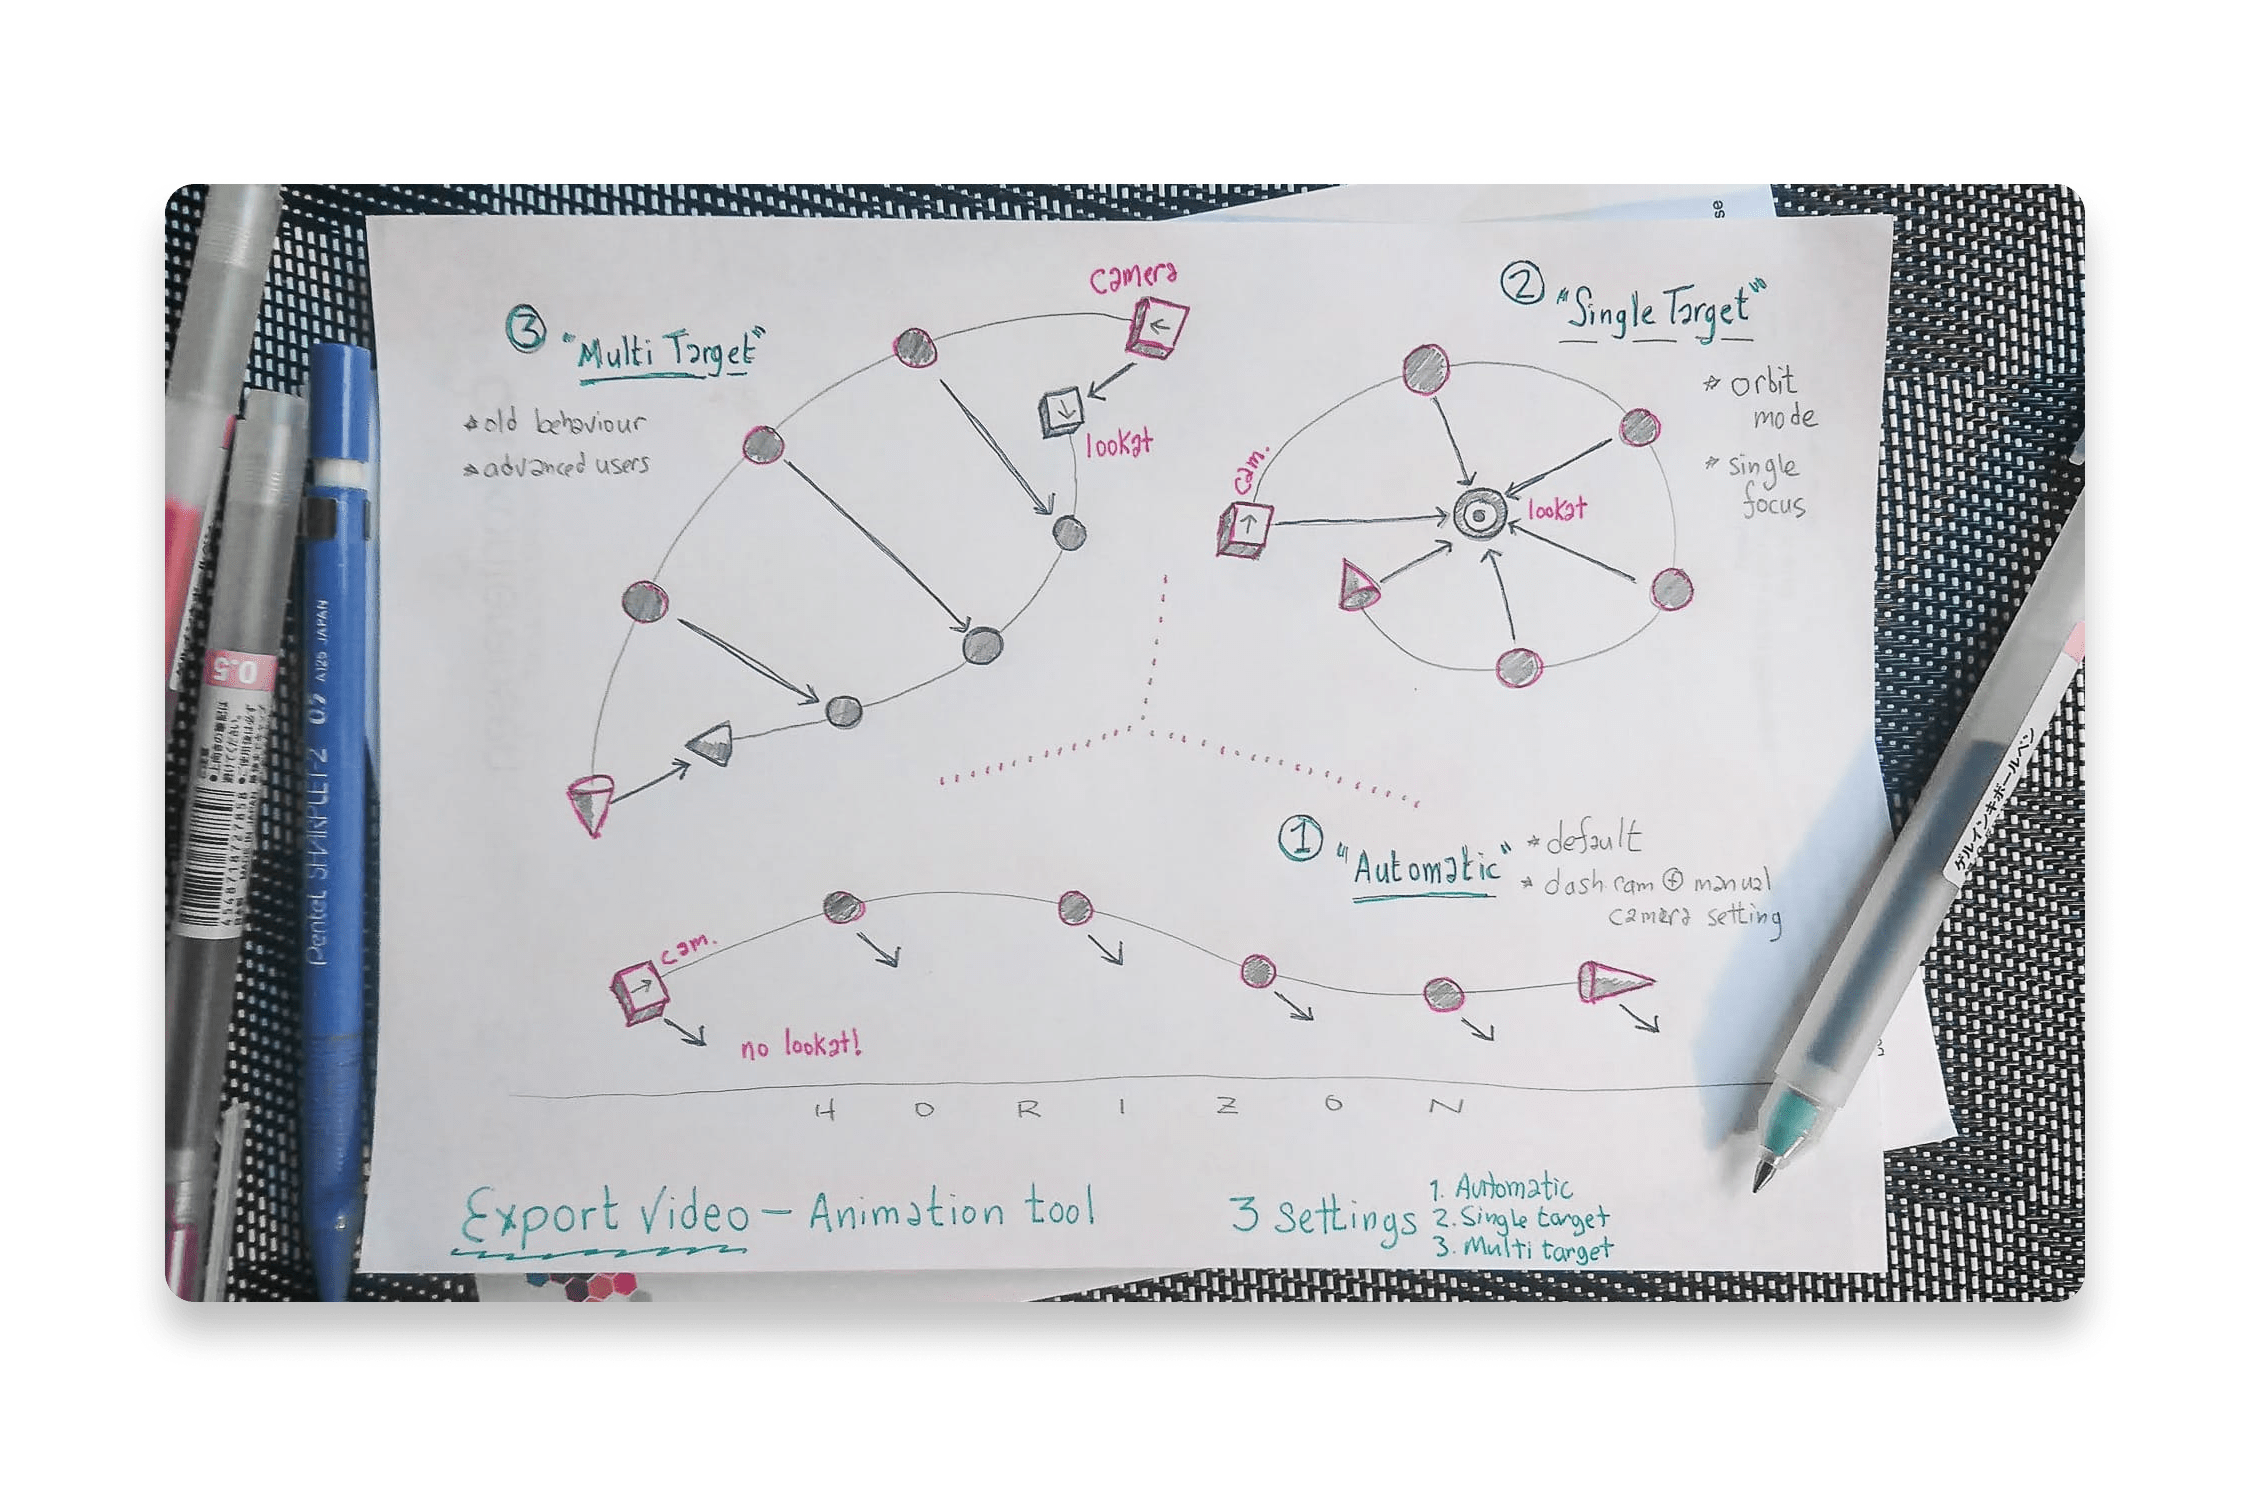 camera
③ "Multi Target"
* old behaviour
* advanced users
lookat
② "Single Target"
* orbit
mode
* single
focus
cam.
lookat
① "Automatic"
* default
* dash cam ⊕ manual
camera setting
cam.
no lookat!
HORIZON
Export Video – Animation tool
3 settings
1. Automatic
2. Single target
3. Multi target
se
0.5
Pentel SHARPLET-2 0.7 A125 JAPAN
4568718727858
ゲルインキボールペン